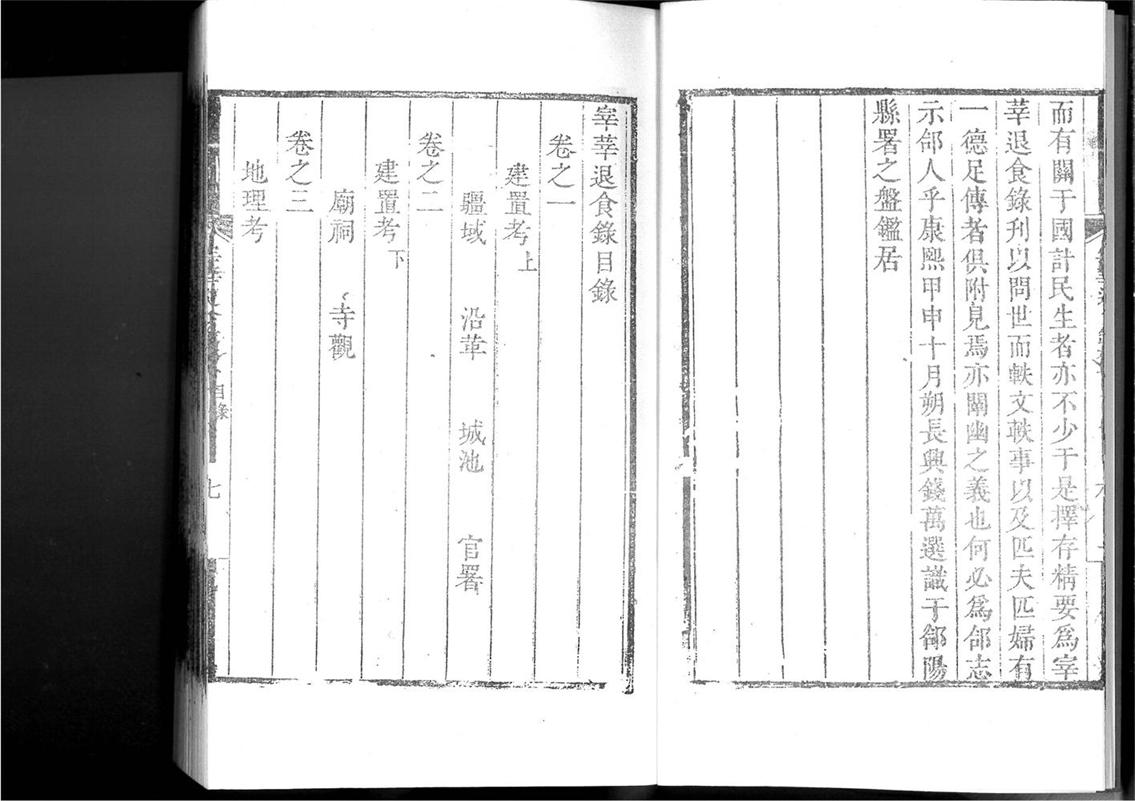 而有關于國計民生者亦不少于是擇存精要爲宰
莘退食錄刋以問世而軼文軼事以及匹夫匹婦有
一德足傳者俱附見焉亦闡幽之義也何必爲郃志
示郃人乎康熙甲申十月朔長興錢萬選識于郃陽
縣署之盤鑑居
宰莘退食錄目錄
卷之一
建置考上
疆域 沿革 城池 官署
卷之二
建置考下
廟祠 寺觀
卷之三
地理考
目錄
七